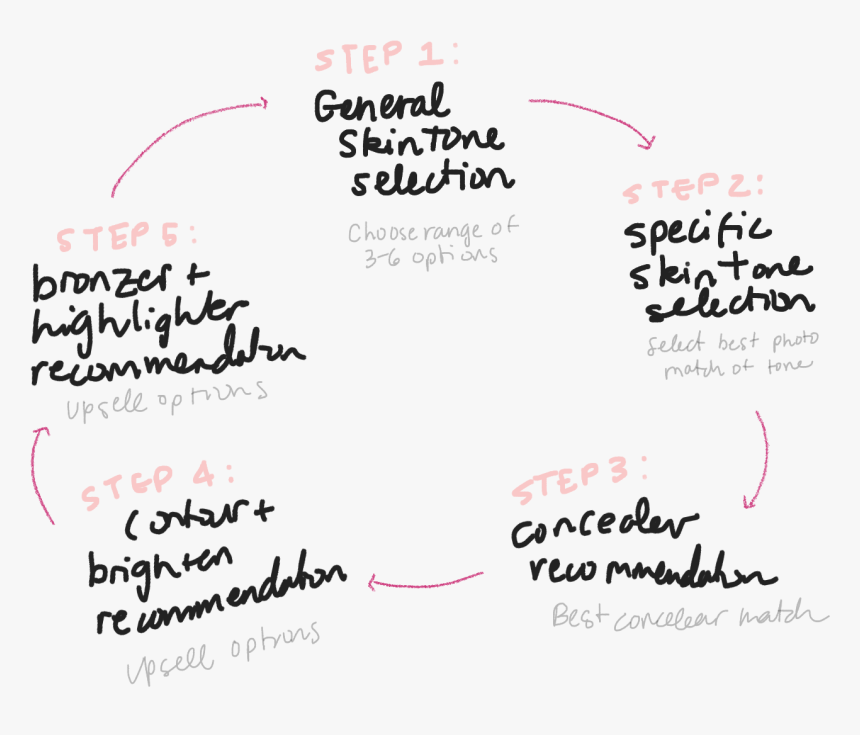 STEP 1:
General
skintone
selection
Choose range of
3-6 options
STEP 2:
specific
skintone
selection
select best photo
match of tone
STEP 3:
concealer
recommendation
Best concelear match
STEP 4:
contour +
brighten
recommendation
upsell options
STEP 5:
bronzer +
highlighter
recommendation
upsell options